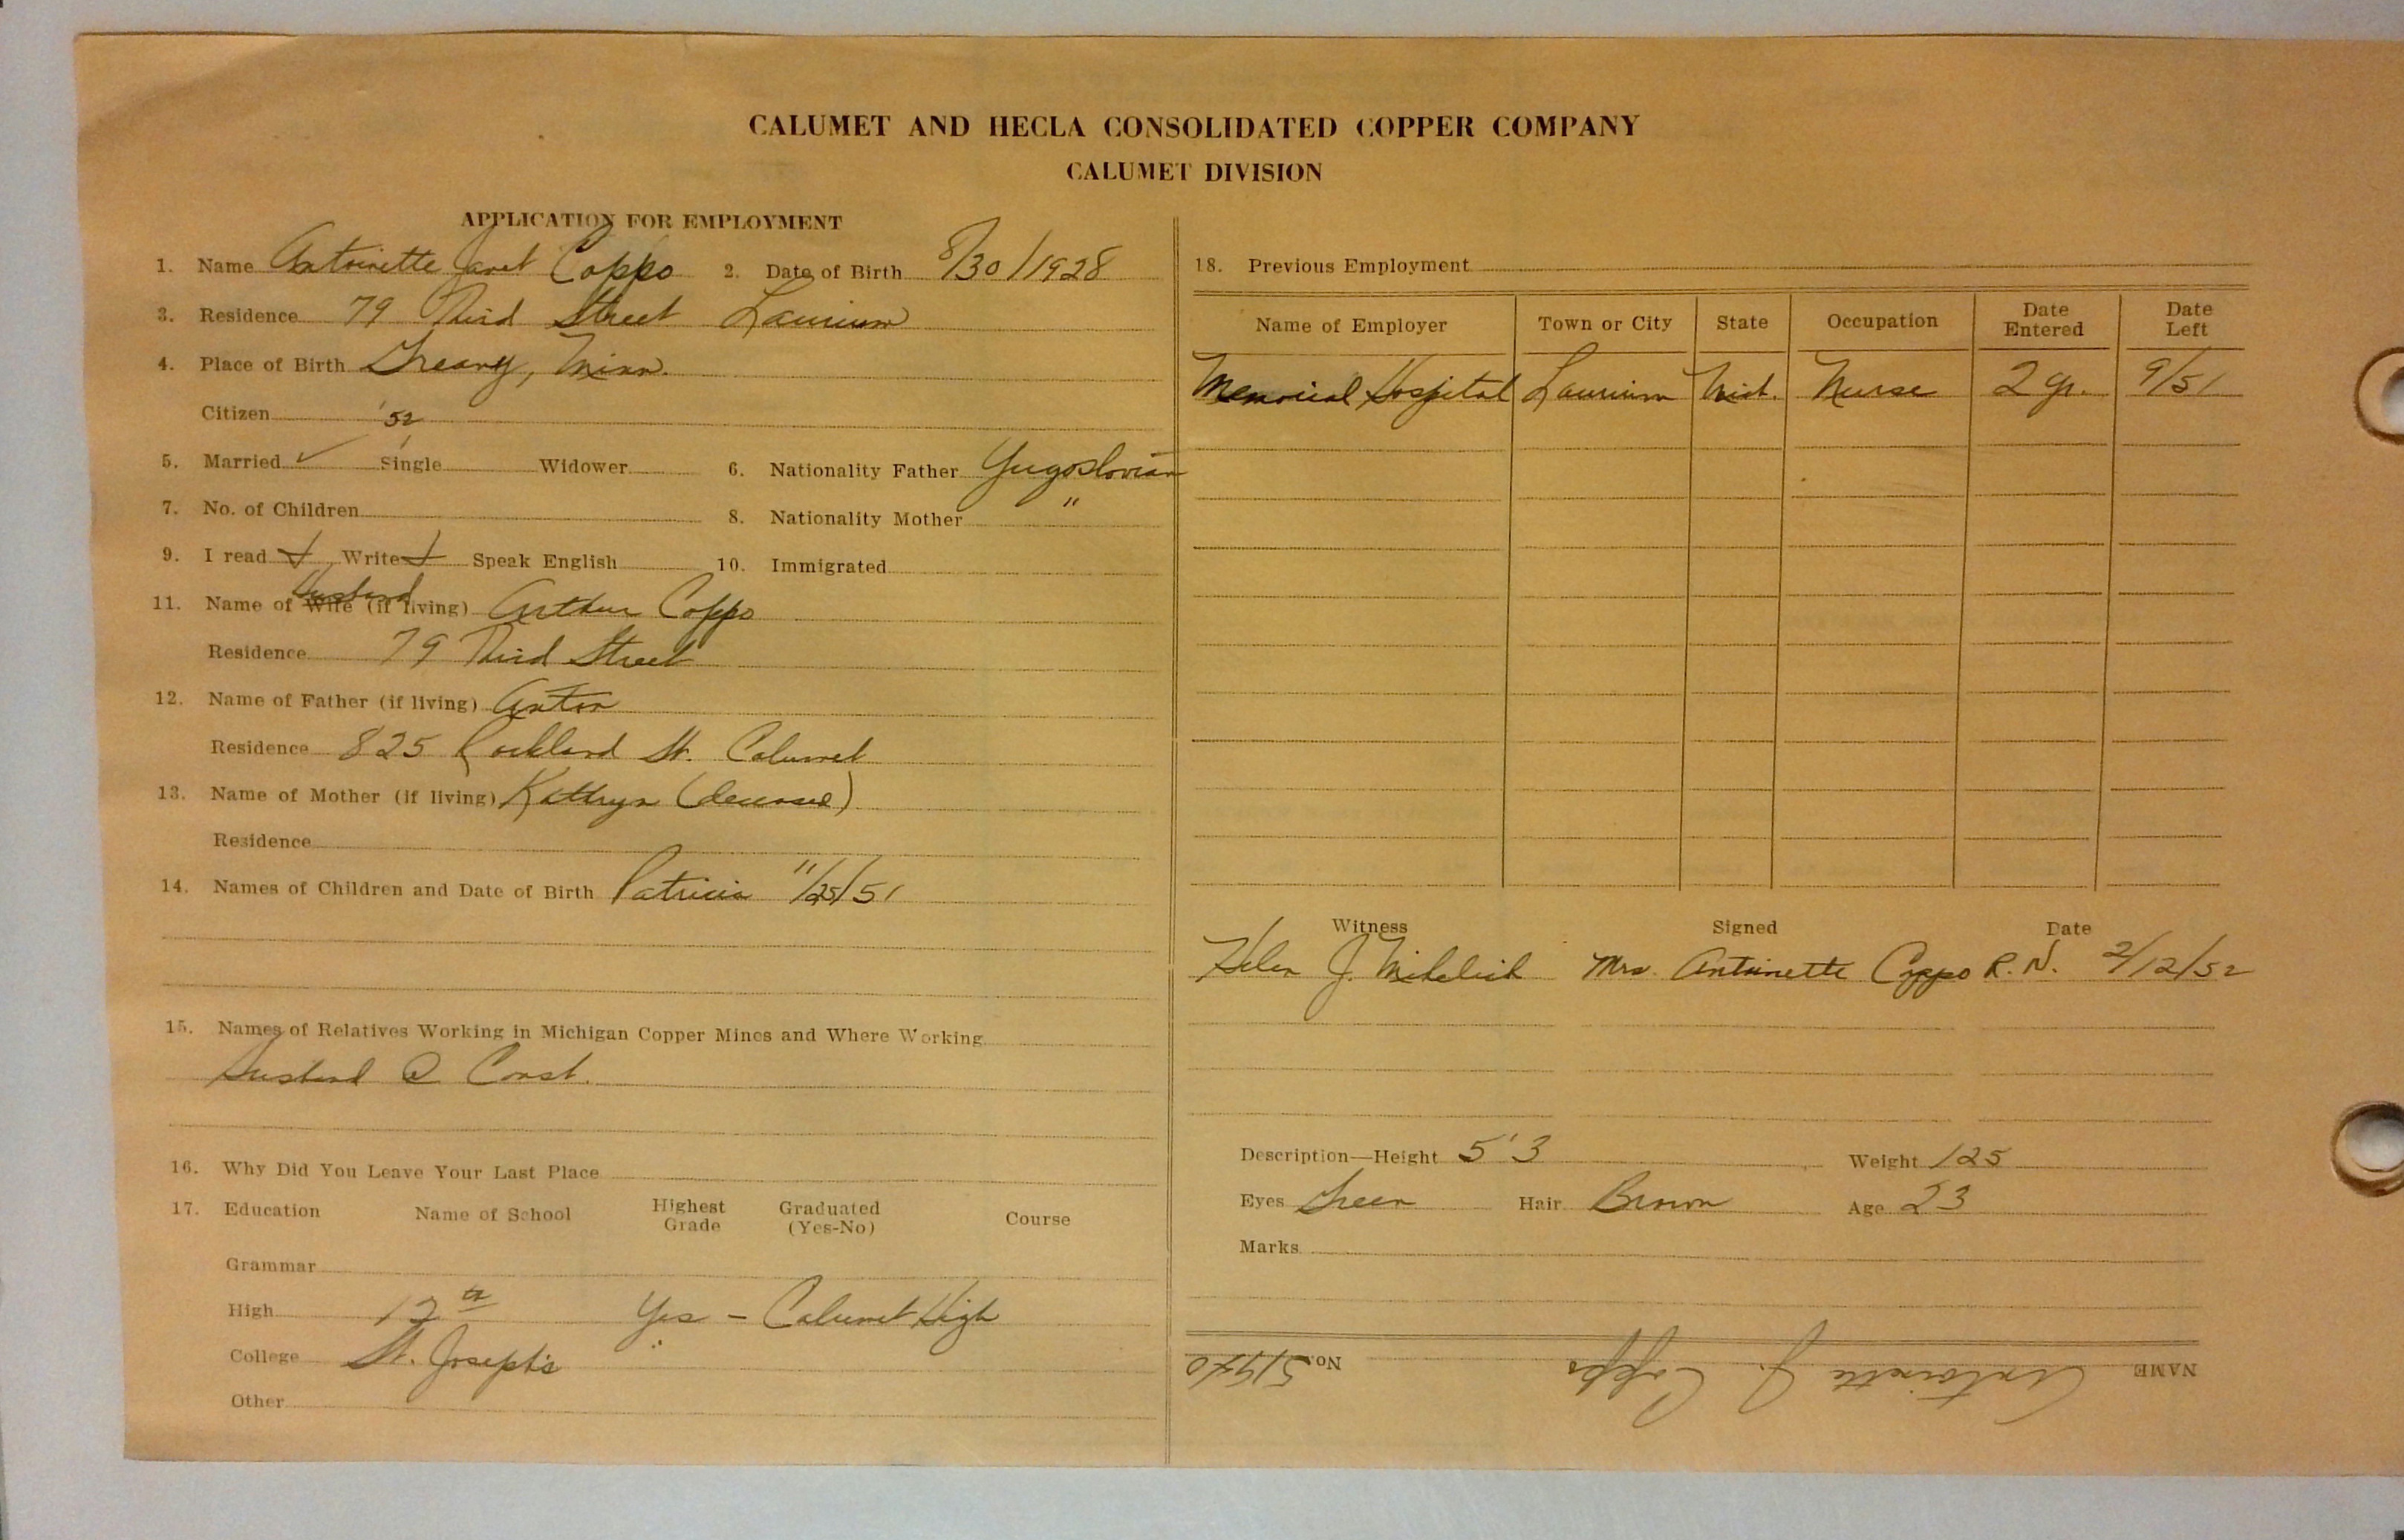 CALUMET AND HECLA CONSOLIDATED COPPER COMPANY
CALUMET DIVISION
APPLICATION FOR EMPLOYMENT
1. Name Antoinette Janet Coppo 2. Date of Birth 8/30/1928
3. Residence 79 Third Street Laurium
4. Place of Birth Greany, Minn.
Citizen '52
5. Married ✓ Single Widower 6. Nationality Father Yugoslovian
7. No. of Children 8. Nationality Mother "
9. I read Write Speak English 10. Immigrated
Husband
11. Name of Wife (if living) Arthur Coppo
Residence 79 Third Street
12. Name of Father (if living) Anton
Residence 825 Rockland St. Calumet
13. Name of Mother (if living) Kathryn (deceased)
Residence
14. Names of Children and Date of Birth Patricia 11/25/51
15. Names of Relatives Working in Michigan Copper Mines and Where Working
Husband @ Const.
16. Why Did You Leave Your Last Place
17. Education Name of School Highest Grade Graduated (Yes-No) Course
Grammar
High 12th Yes - Calumet High
College St. Joseph's
Other
18. Previous Employment
Name of Employer Town or City State Occupation Date Entered Date Left
Memorial Hospital Laurium Mich. Nurse 2 yr. 9/51
Witness Signed Date
Helen J. Mihelich Mrs. Antoinette Coppo R.N. 2/12/52
Description—Height 5'3 Weight 125
Eyes Green Hair Brown Age 23
Marks
NAME Antoinette J. Coppo No.